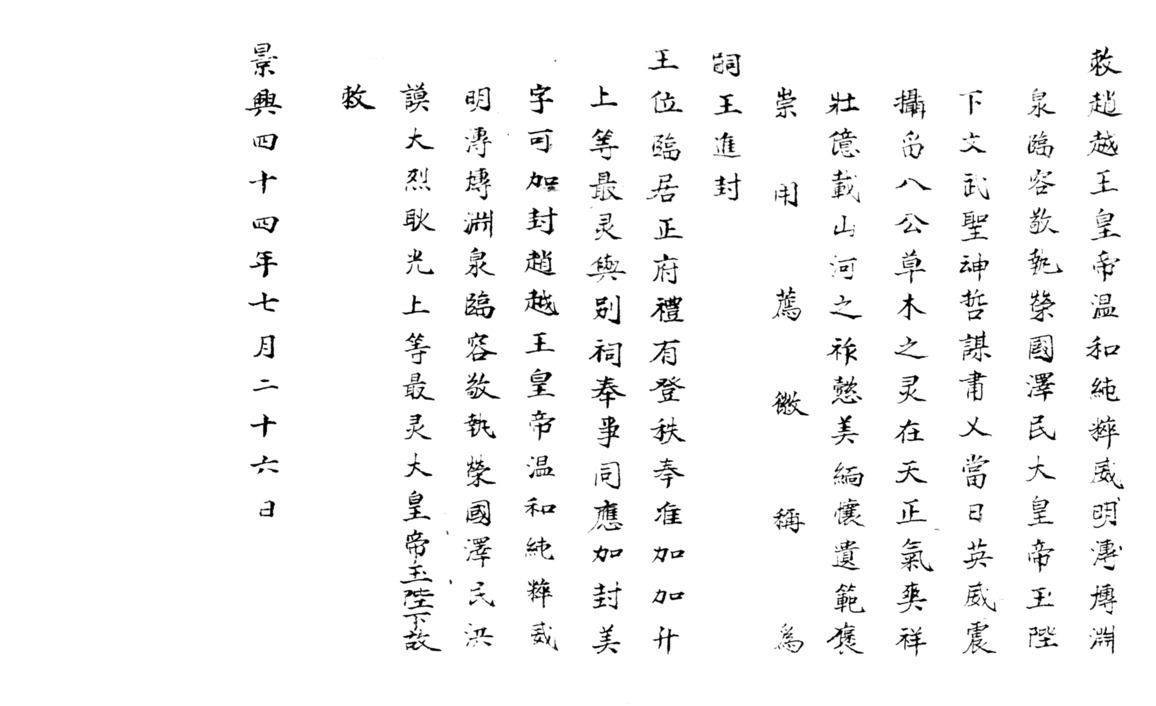 敕趙越王皇帝温和純粹威明溥博淵
泉臨容敬執榮國澤民大皇帝玉陛
下文武聖神哲謀肅乂當日英威震
攝畄八公草木之灵在天正氣奐祥
壯億載山河之祚懿美緬懷遺範褒
崇用薦徽稱為
嗣王進封
王位臨居正府禮有登秩奉准加加升
上等最灵與别祠奉事同應加封美
字可加封趙越王皇帝温和純粹威
明溥博淵泉臨容敬執榮國澤民洪
謨大烈耿光上等最灵大皇帝玉陛下故
敕
景興四十四年七月二十六日